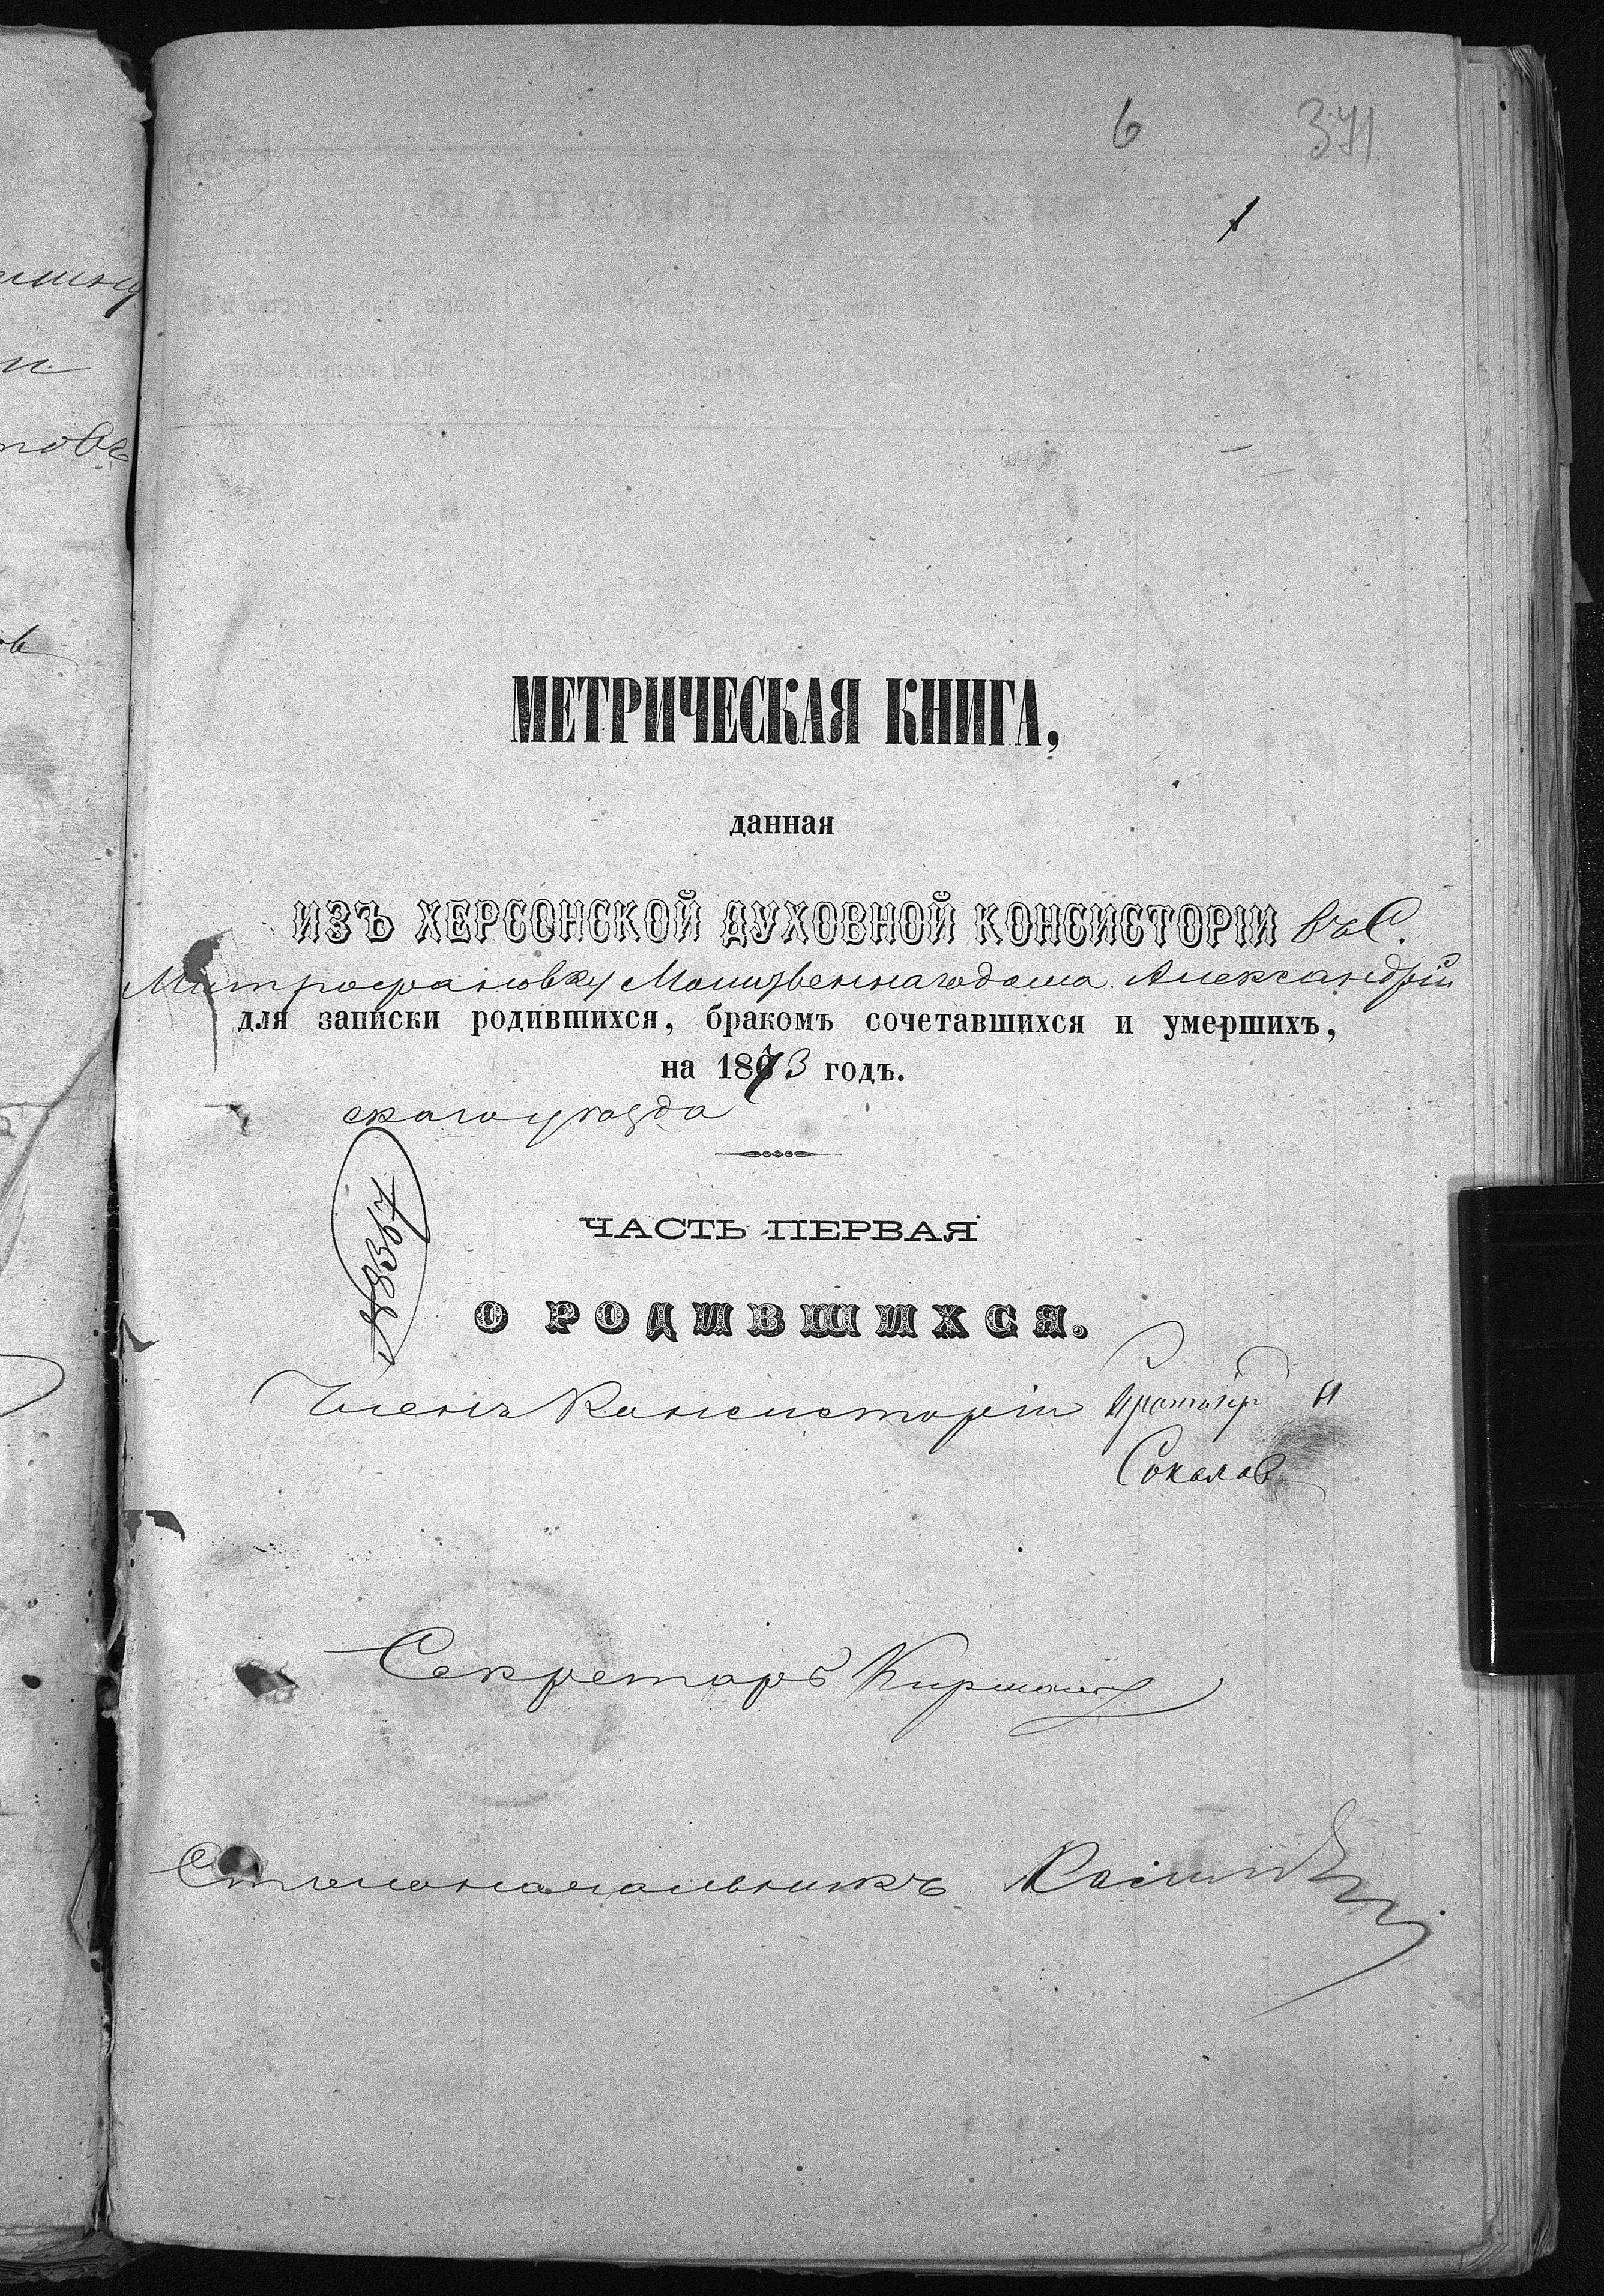 6 371
1
МЕТРИЧЕСКАЯ КНИГА,
данная
ИЗЪ ХЕРСОНСКОЙ ДУХОВНОЙ КОНСИСТОРІИ въ С.
Митрофановку Молитвеннаго дома Александрій
для записки родившихся, бракомъ сочетавшихся и умершихъ,
на 1873 годъ.
скаго уѣзда
№ 8367
ЧАСТЬ ПЕРВАЯ
О РОДИВШИХСЯ.
Членъ Консисторіи Протоіер Н
Соколов
Секретарь
Столоначальникъ